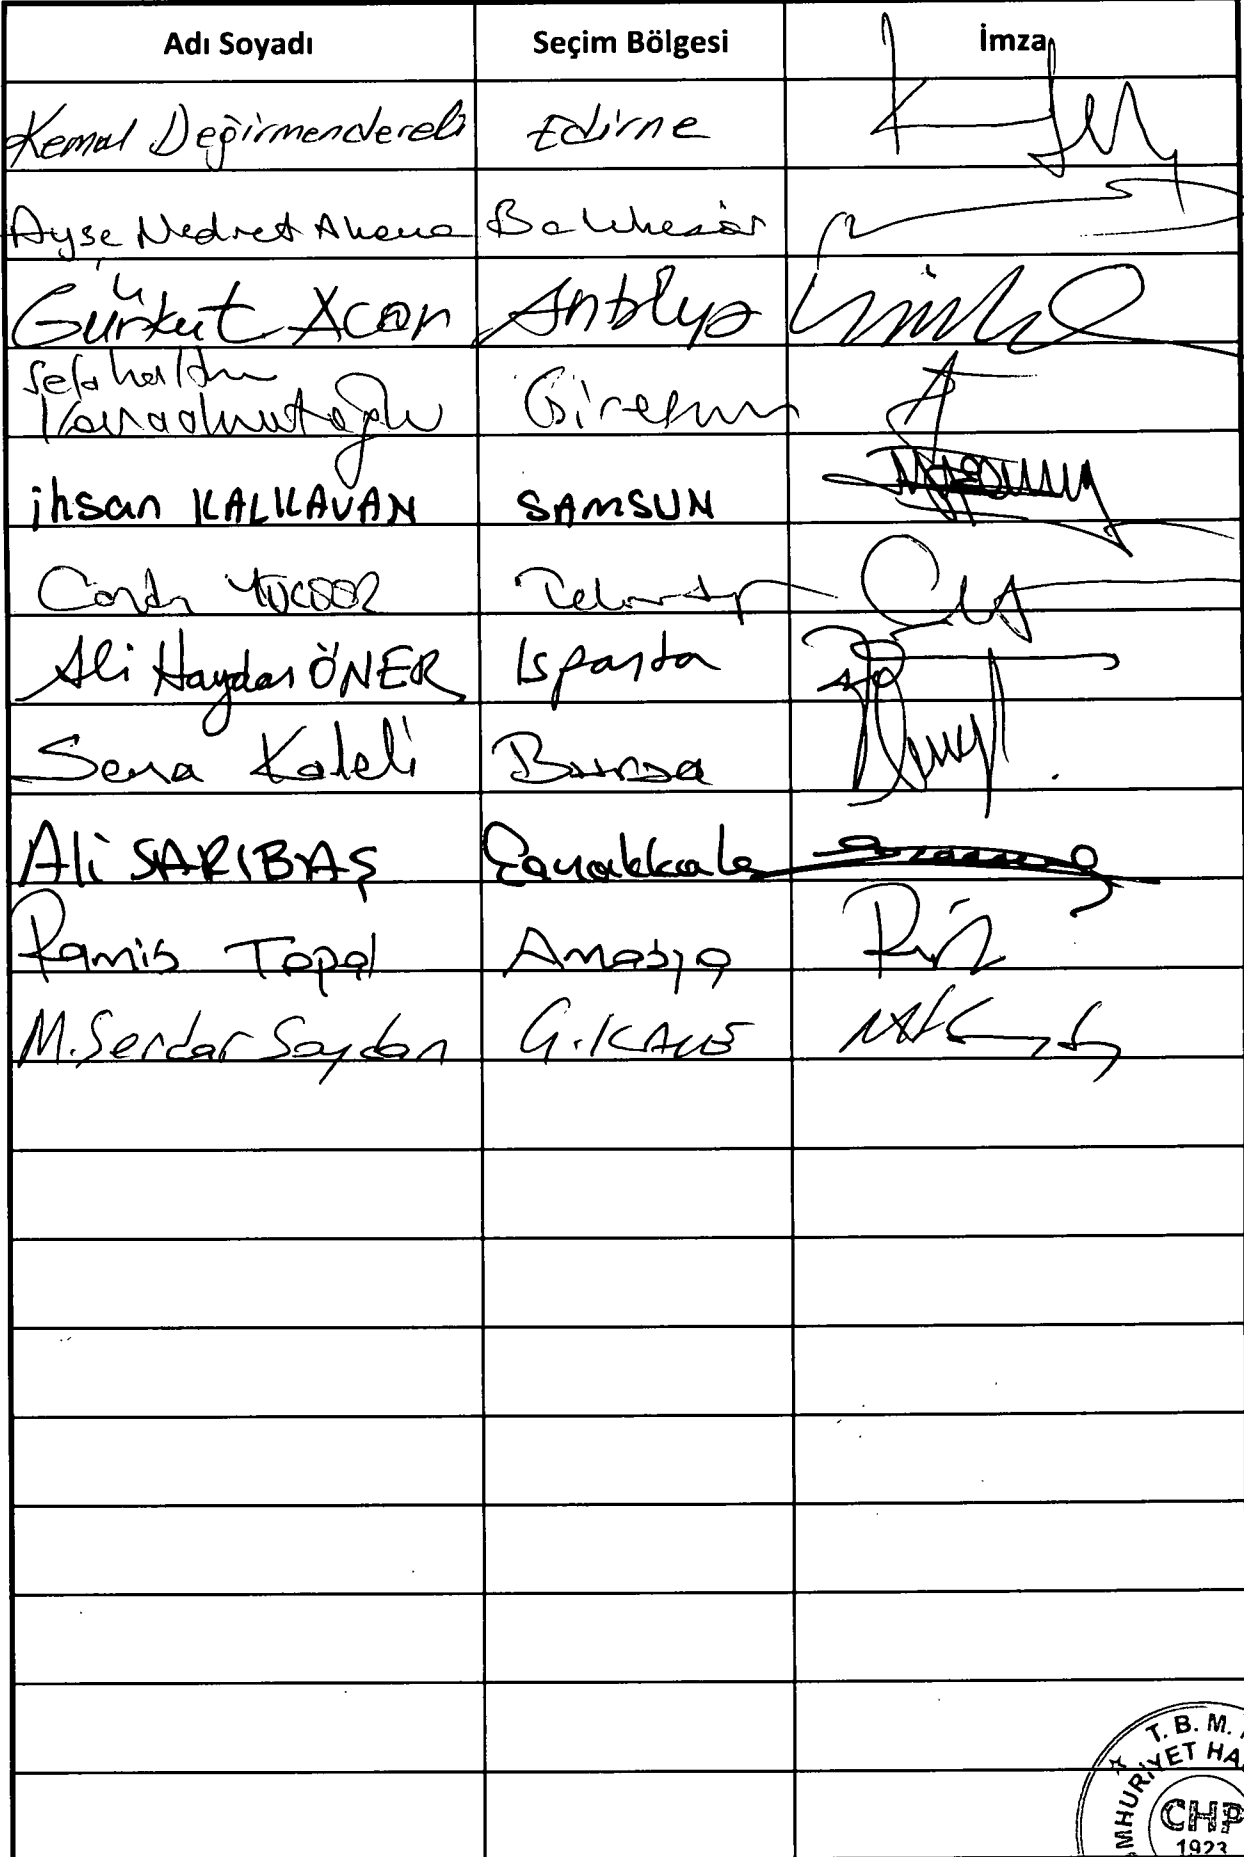 Adı Soyadı Seçim Bölgesi İmza
Kemal Değirmendereli Edirne
Ayşe Nedret Akova Balıkesir
Gürkut Acar Antalya
Selahattin
Karaahmetoğlu Giresun
ihsan KALKAVAN SAMSUN
Candan YÜCEER Tekirdağ
Ali Haydar ÖNER Isparta
Sena Kaleli Bursa
Ali SARIBAŞ Çanakkale
Ramis Topal Amasya
M. Serdar Soydan Ç.KALE
T. B. M.
MHURİYET HA
CHP
1923